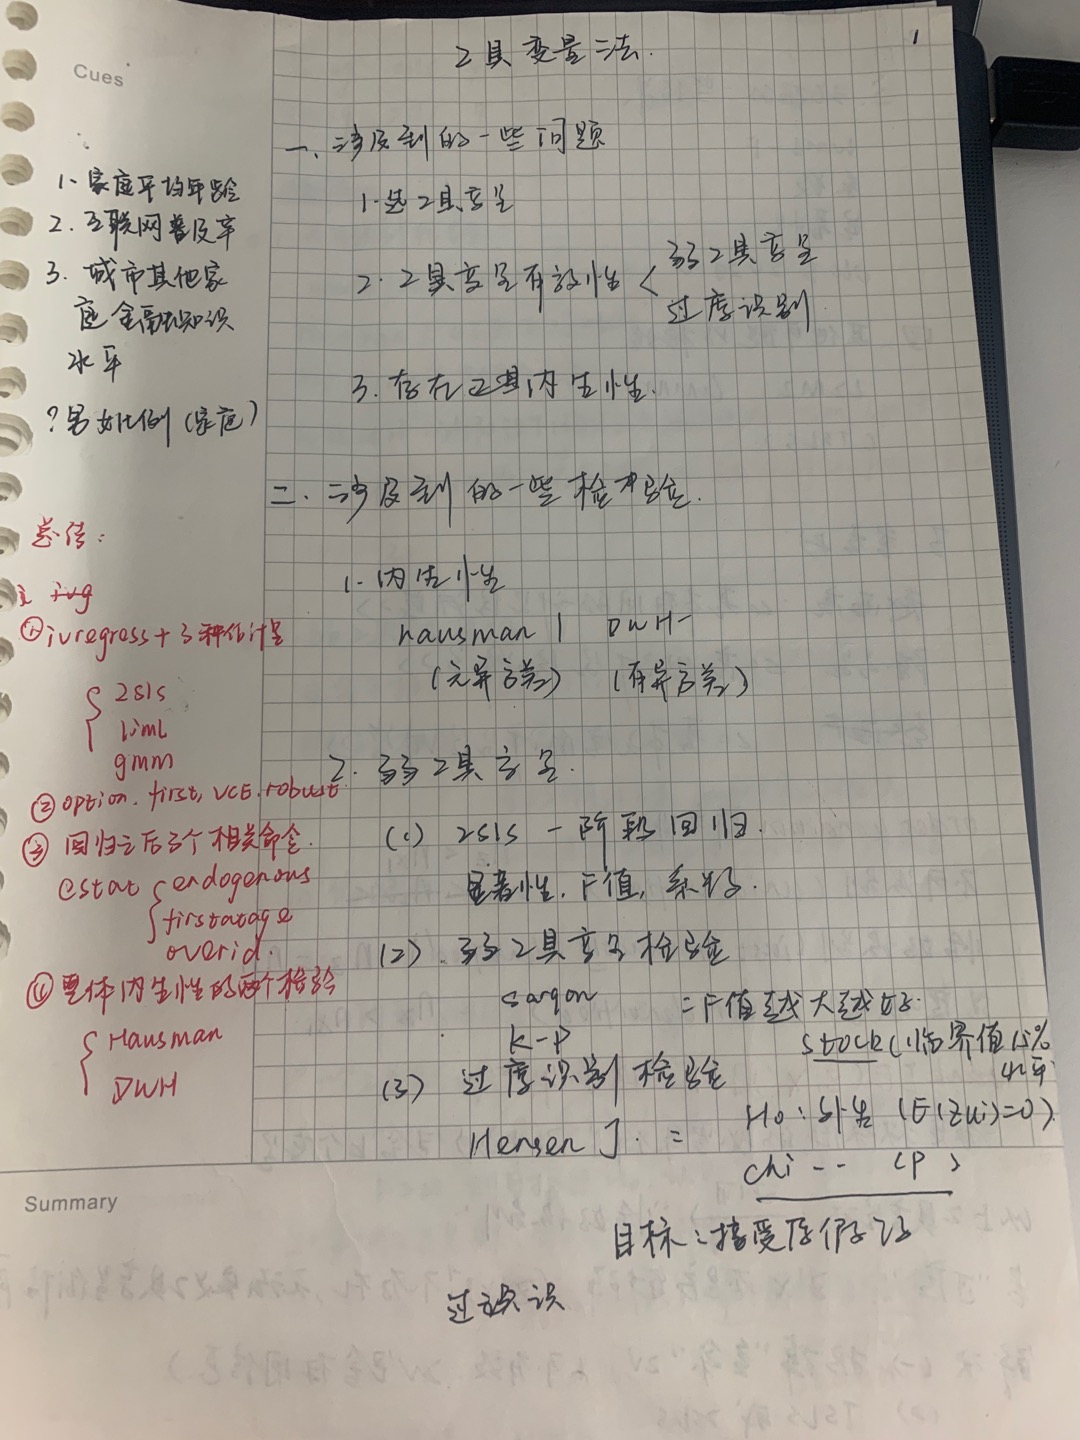 1
工具变量法.
Cues
一、涉及到的一些问题
1.选工具变量
2.工具变量有效性 < 弱工具变量
过度识别
3.存在工具内生性.
1.家庭平均年龄
2.互联网普及率
3.城市其他家
庭金融知识
水平
?男女比例(家庭)
二.涉及到的一些检验.
1.内生性
hausman | DWH
(无异方差) (有异方差)
2.弱工具变量.
(1) 2sls 一阶段回归.
显著性, F值,
(2).弱工具变量检验
sargon =F值越大越好.
K-P stock(临界值15%
水平
(3) 过度识别检验
Hensen J. = H0:外生(E(Zui)=0)
chi -- (P)
总结:
ivg
①ivregress+3种估计量
2sls
liml
gmm
②option.first, VCE.robust
③回归之后3个相关命令.
estat endogenous
firstatage
overid.
④整体内生性的两个检验
Hausman
DWH
Summary
目标:接受原假设
过误识